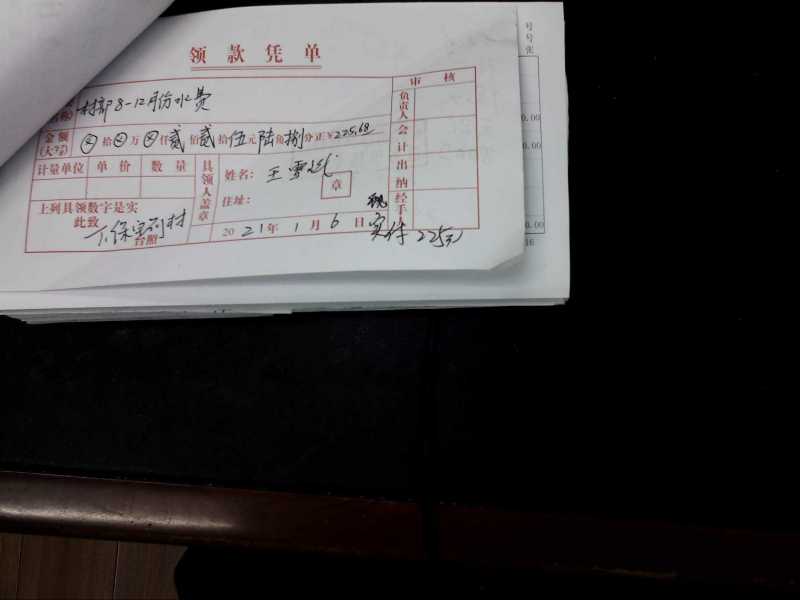 领款凭单
审核
称) 村部8-12月份水费
负责人
金额(大写) ⊗拾⊗万⊗仟贰佰贰拾伍元陆角捌分正¥225.68
会计
计量单位 单价 数量
具领人盖章
姓名: 王雪
章
出纳
住址:
上列具领数字是实
此致
台照
2021年1月6日
经手人
现
实付225元
号
号
张
0.00
0.00
0.00
16